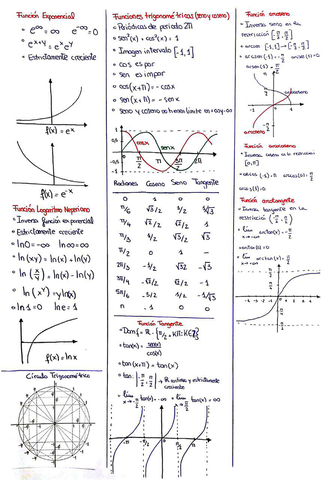 Función Exponencial
• e^∞ = ∞ e^-∞ = 0
• e^x+y = e^x e^y
• Estrictamente creciente
f(x) = e^x
f(x) = e^-x
Función Logaritmo Neperiano
• Inversa función exponencial
• Estrictamente creciente
• ln 0 = -∞ ln ∞ = ∞
• ln (xy) = ln(x) + ln(y)
• ln (x/y) = ln(x) - ln(y)
• ln (x^y) = y ln(x)
• ln 1 = 0 ln e = 1
f(x) = ln x
Círculo Trigonométrico
Funciones trigonométricas (seno y coseno)
• Periódicas de periodo 2π
• sen²(x) + cos²(x) = 1
• Imagen intervalo [-1,1]
• cos es par
• sen es impar
• cos(x+π) = -cosx
• sen(x+π) = -senx
• Seno y coseno no tienen límite en
cosx
senx
Radianes Coseno Seno Tangente
0 1 0 0
π/6 √3/2 1/2
π/4 √2/2 √2/2 1
π/3 1/2 √3/2 √3
π/2 0 1 -
2π/3 -1/2 √3/2 -√3
3π/4 -√2/2 √2/2 -1
5π/6 1/2
π -1 0 0
Función Tangente
• tan(x) = sen(x)/cos(x)
• tan(x+π) = tan(x)
creciente
Función arcoseno
• Inversa seno en la
restricción [-π/2, π/2]
• arcsen [-1,1] → [-π/2, π/2]
• arcsen(-1) = -π/2 arcsen(0) = 0
arcsen(1) = π/2
arcoseno
Función arcocoseno
• Inversa coseno a la restricción
[0,π]
arcos(1) = 0
Función arcotangente
• Inversa tangente en la
restricción (-π/2, π/2)